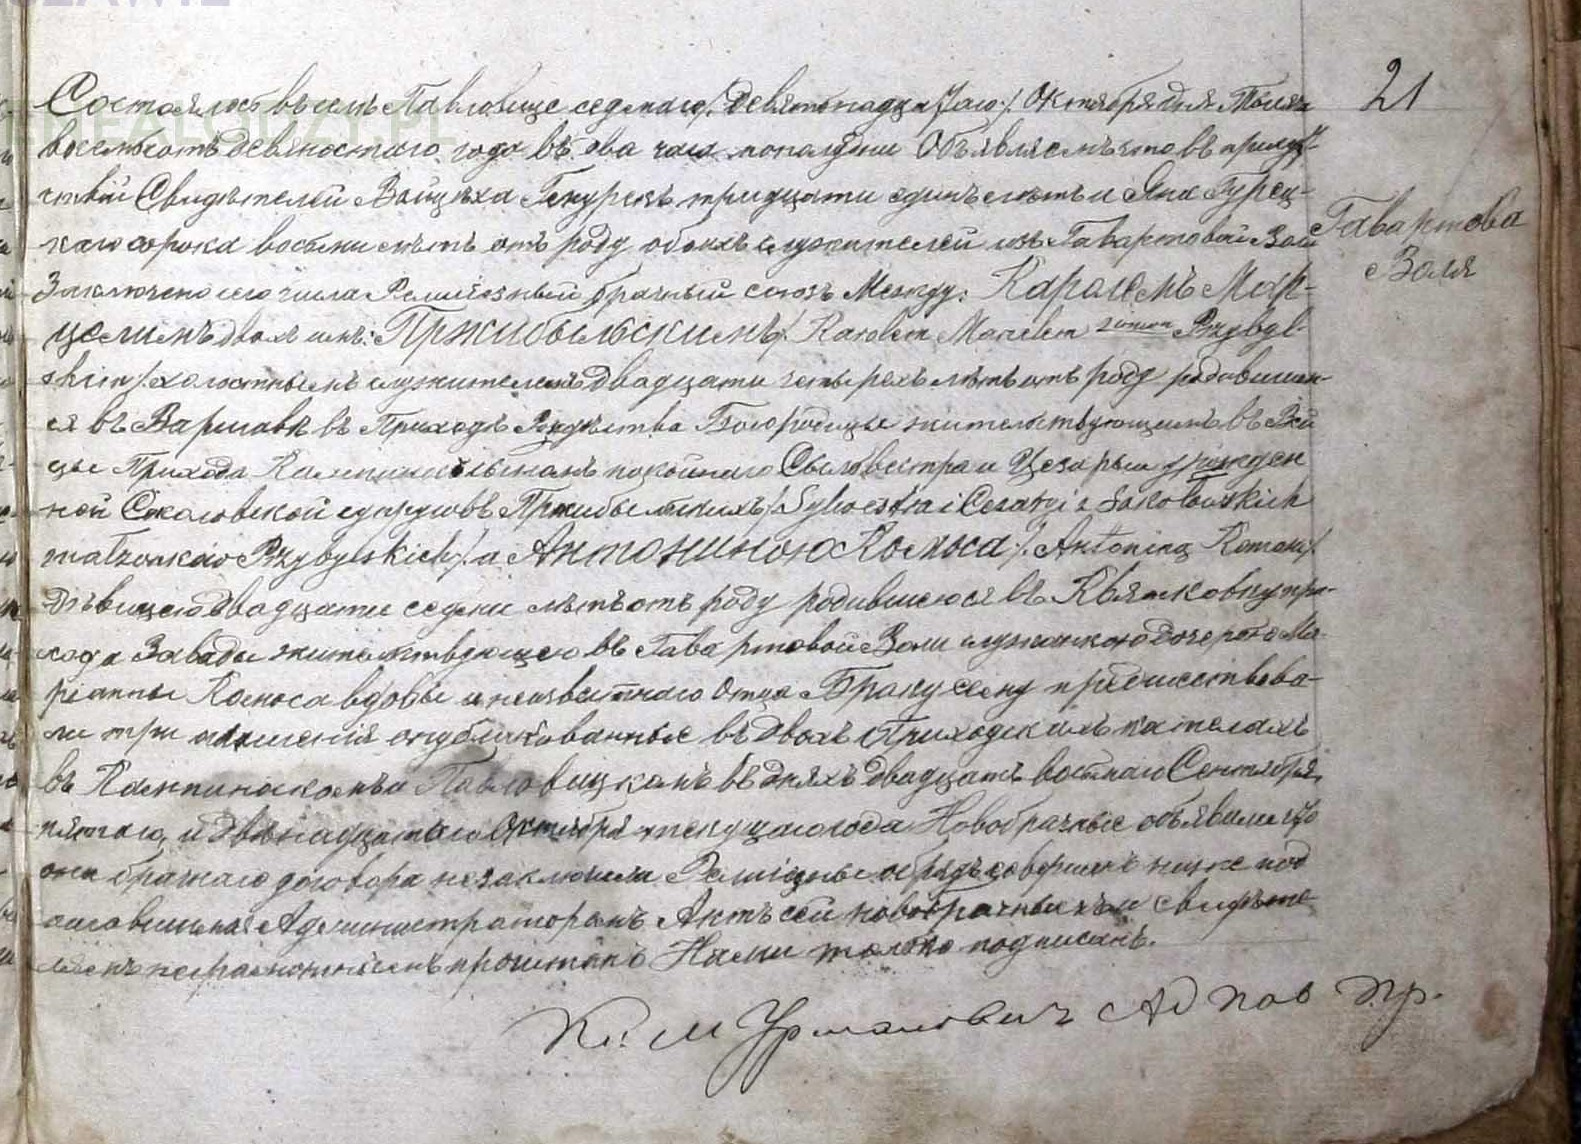 21
Гавартова
Воля
Состоялось въ селѣ Павловице седьмаго /: девятнадцатаго :/ Октября дня Тысяча
восемьсотъ девяностаго года въ два часа пополудни Объявляемъ что въ присут-
ствіи Свидѣтелей Войцѣха тридцати одинъ лѣтъ и Яна Гурец-
каго сорока восьми лѣтъ отъ роду обоихъ служителей изъ Гавартовой Воли
Заключено сего числа Религіозный брачный союзъ Между: Каролемъ Мар-
целимъ двохъ имъ: Пржибыльскимъ /: Karolem Marcelem 2 imion Przybyl-
skim :/ холостымъ служителемъ двадцати четырехъ лѣтъ отъ роду родившим-
ся въ Варшавѣ въ Приходѣ Рождества Богородицы жительствующимъ въ
цы Прихода сыномъ покойнаго Сыльвестра и Цезарыи урожден-
ной Соколовской супруговъ Пржибыльскихъ /: Sylwestra i Cezaryi z Sokołowskich
małżonków Przybylskich :/ а Антониною Комоса /: Antoniną Komosa :/
Дѣвицею двадцати седьми лѣтъ отъ роду родившеюся въ Квятковку при-
хода Завады жительствующею въ Гавартовой Воли служанкою дочерью Ма-
ріанны Комоса вдовы и неизвѣстнаго отца Браку сему предшествова-
ли три оглашенія опубликованные въ двохъ Приходскихъ костелахъ
въ Кампиноскомъ и Павловицкомъ въ дняхъ двадцать восьмаго Сентября,
пятаго, и двѣнадцатаго Октября текущаго года Новобрачные объявили что
они брачнаго договора не заключили Религіозный обрядъ совершенъ ниже под-
писавшимся Администраторомъ Актъ сей новобрачнымъ и свидѣте-
лямъ неграмотнымъ прочитанъ Нами только подписанъ.
Кс. М Урмановичъ Ад Пав пр.